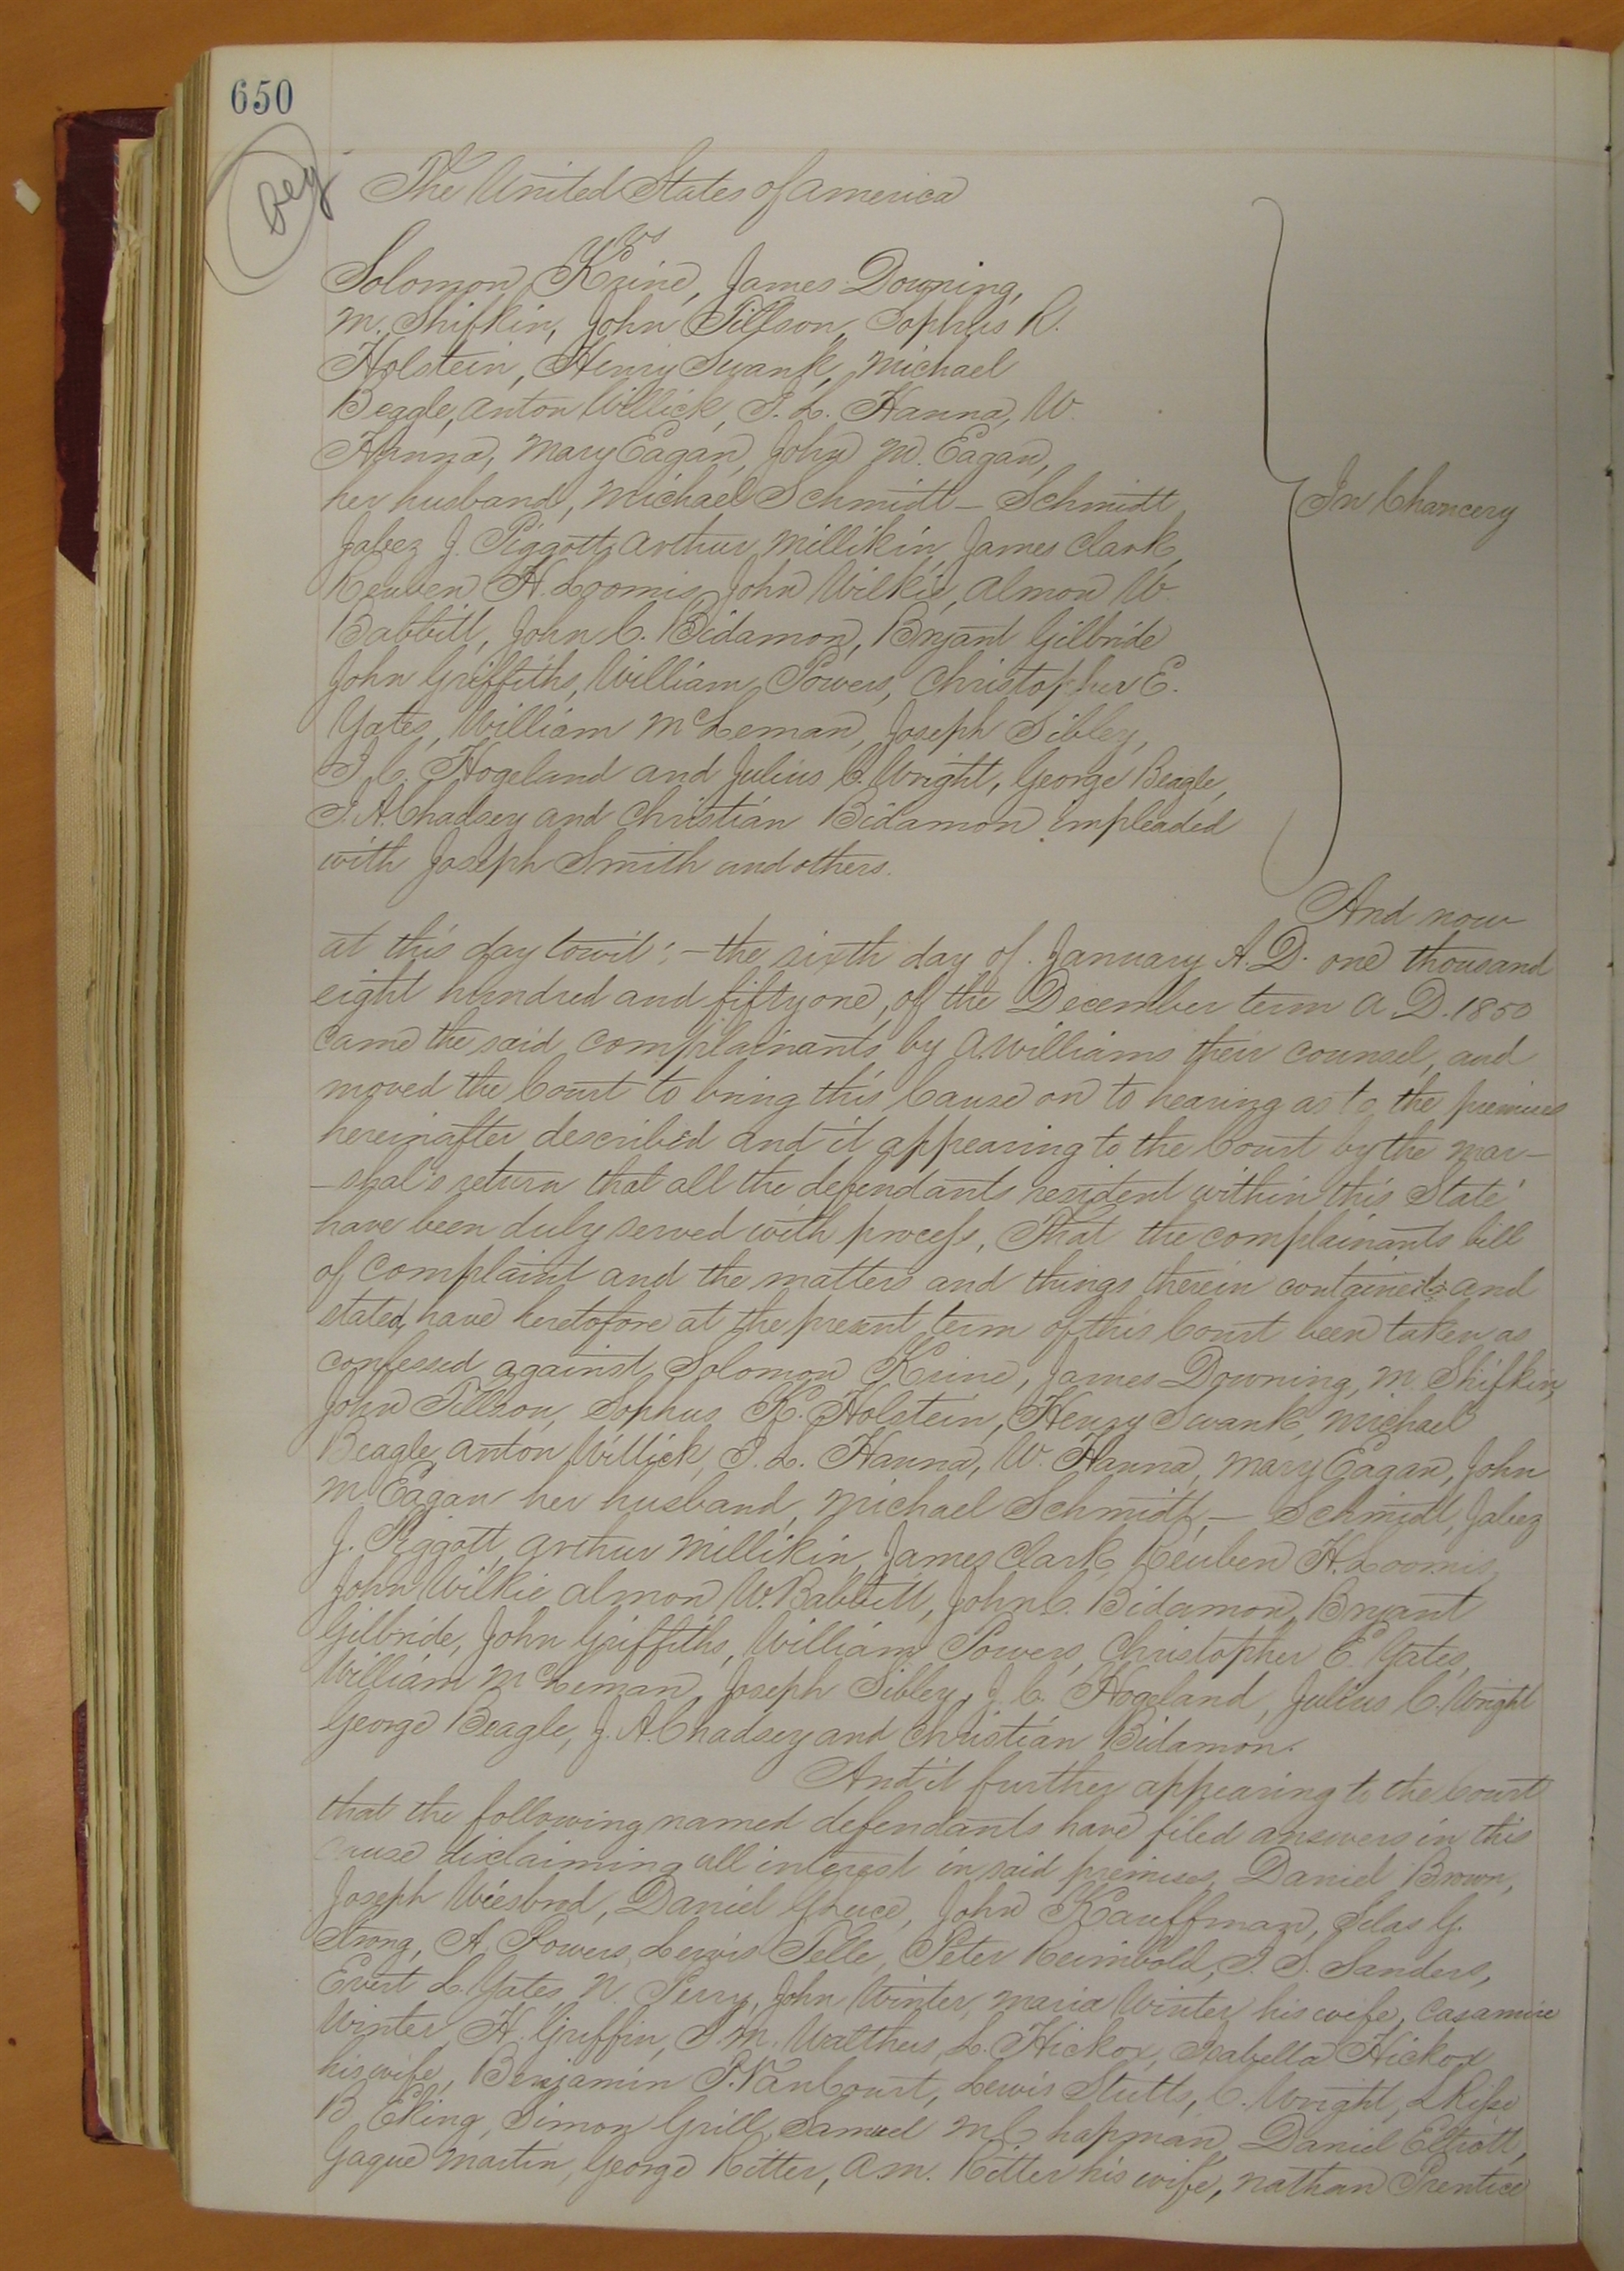 650
Beg
The United States of America
vs
Solomon Krine, James Downing,
M. Shifkin, John Tillson, Sophus K.
Holstein, Henry Swank, Michael
Beagle, Anton Willick, I. L. Hanna, W.
Hanna, Mary Eagan, John M. Eagan,
her husband, Michael Schmidt – Schmidt
Jabez J. Piggott, Arthur Millikin, James Clark,
Reuben H. Loomis, John Wilkie, Almon W.
Babbitt, John C. Bidamon, Bryant Gilbride
John Griffiths, William Powers, Christopher E.
Yates, William McLeman, Joseph Sibley,
I. C. Hogeland and Julius C. Wright, George Beagle,
I. A. Chadsey and Christian Bidamon impleaded
with Joseph Smith and others.
In Chancery
And now
at this day towit: – the sixth day of January A. D. one thousand
eight hundred and fifty one, of the December term A D. 1850
came the said complainants by A. Williams their counsel, and
moved the Court to bring this Cause on to hearing as to the premises
hereinafter described and it appearing to the Court by the mar–
–shal's return that all the defendants resident within this State
have been duly served with process, That the complainants bill
of complaint and the matters and things therein contained and
stated, have heretofore at the present term of this Court been taken as
confessed against Solomon Krine, James Downing, M. Shifkin,
John Tillson, Sophus K. Holstein, Henry Swank, Michael
Beagle, Anton Willick, I. L. Hanna, W. Hanna, Mary Eagan, John
M Eagan her husband, Michael Schmidt, – Schmidt, Jabez
J. Piggott, Arthur Millikin, James Clark, Reuben H. Loomis,
John Wilkie, Almon W. Babbitt, John C. Bidamon, Bryant
Gilbride, John Griffiths, William Powers, Christopher E. Yates,
William McLeman, Joseph Sibley, J. C. Hogeland, Julius C. Wright
George Beagle, J. A. Chadsey and Christian Bidamon.
And it further appearing to the Court
that the following named defendants have filed answers in this
cause disclaiming all interest in said premises, Daniel Brown,
Joseph Wiesbrod, Daniel Luce, John Kauffman, Silas G.
Strong, A. Powers, Lewis Telle, Peter Reimbold, I. S. Sanders,
Evert L. Yates, N. Perry, John Winter, Maria Winter his wife, Casamire
Winter, H. Griffin, S. M. Walthers, L. Hickox, Isabella Hickox
his wife, Benjamin P. VanCourt, Lewis Stutts, C. Wright,
B. Eking, Simon Grill, Samuel M Chapman, Daniel Elliott,
Martin, George Ritter, A. M. Ritter his wife, Nathan Prentice